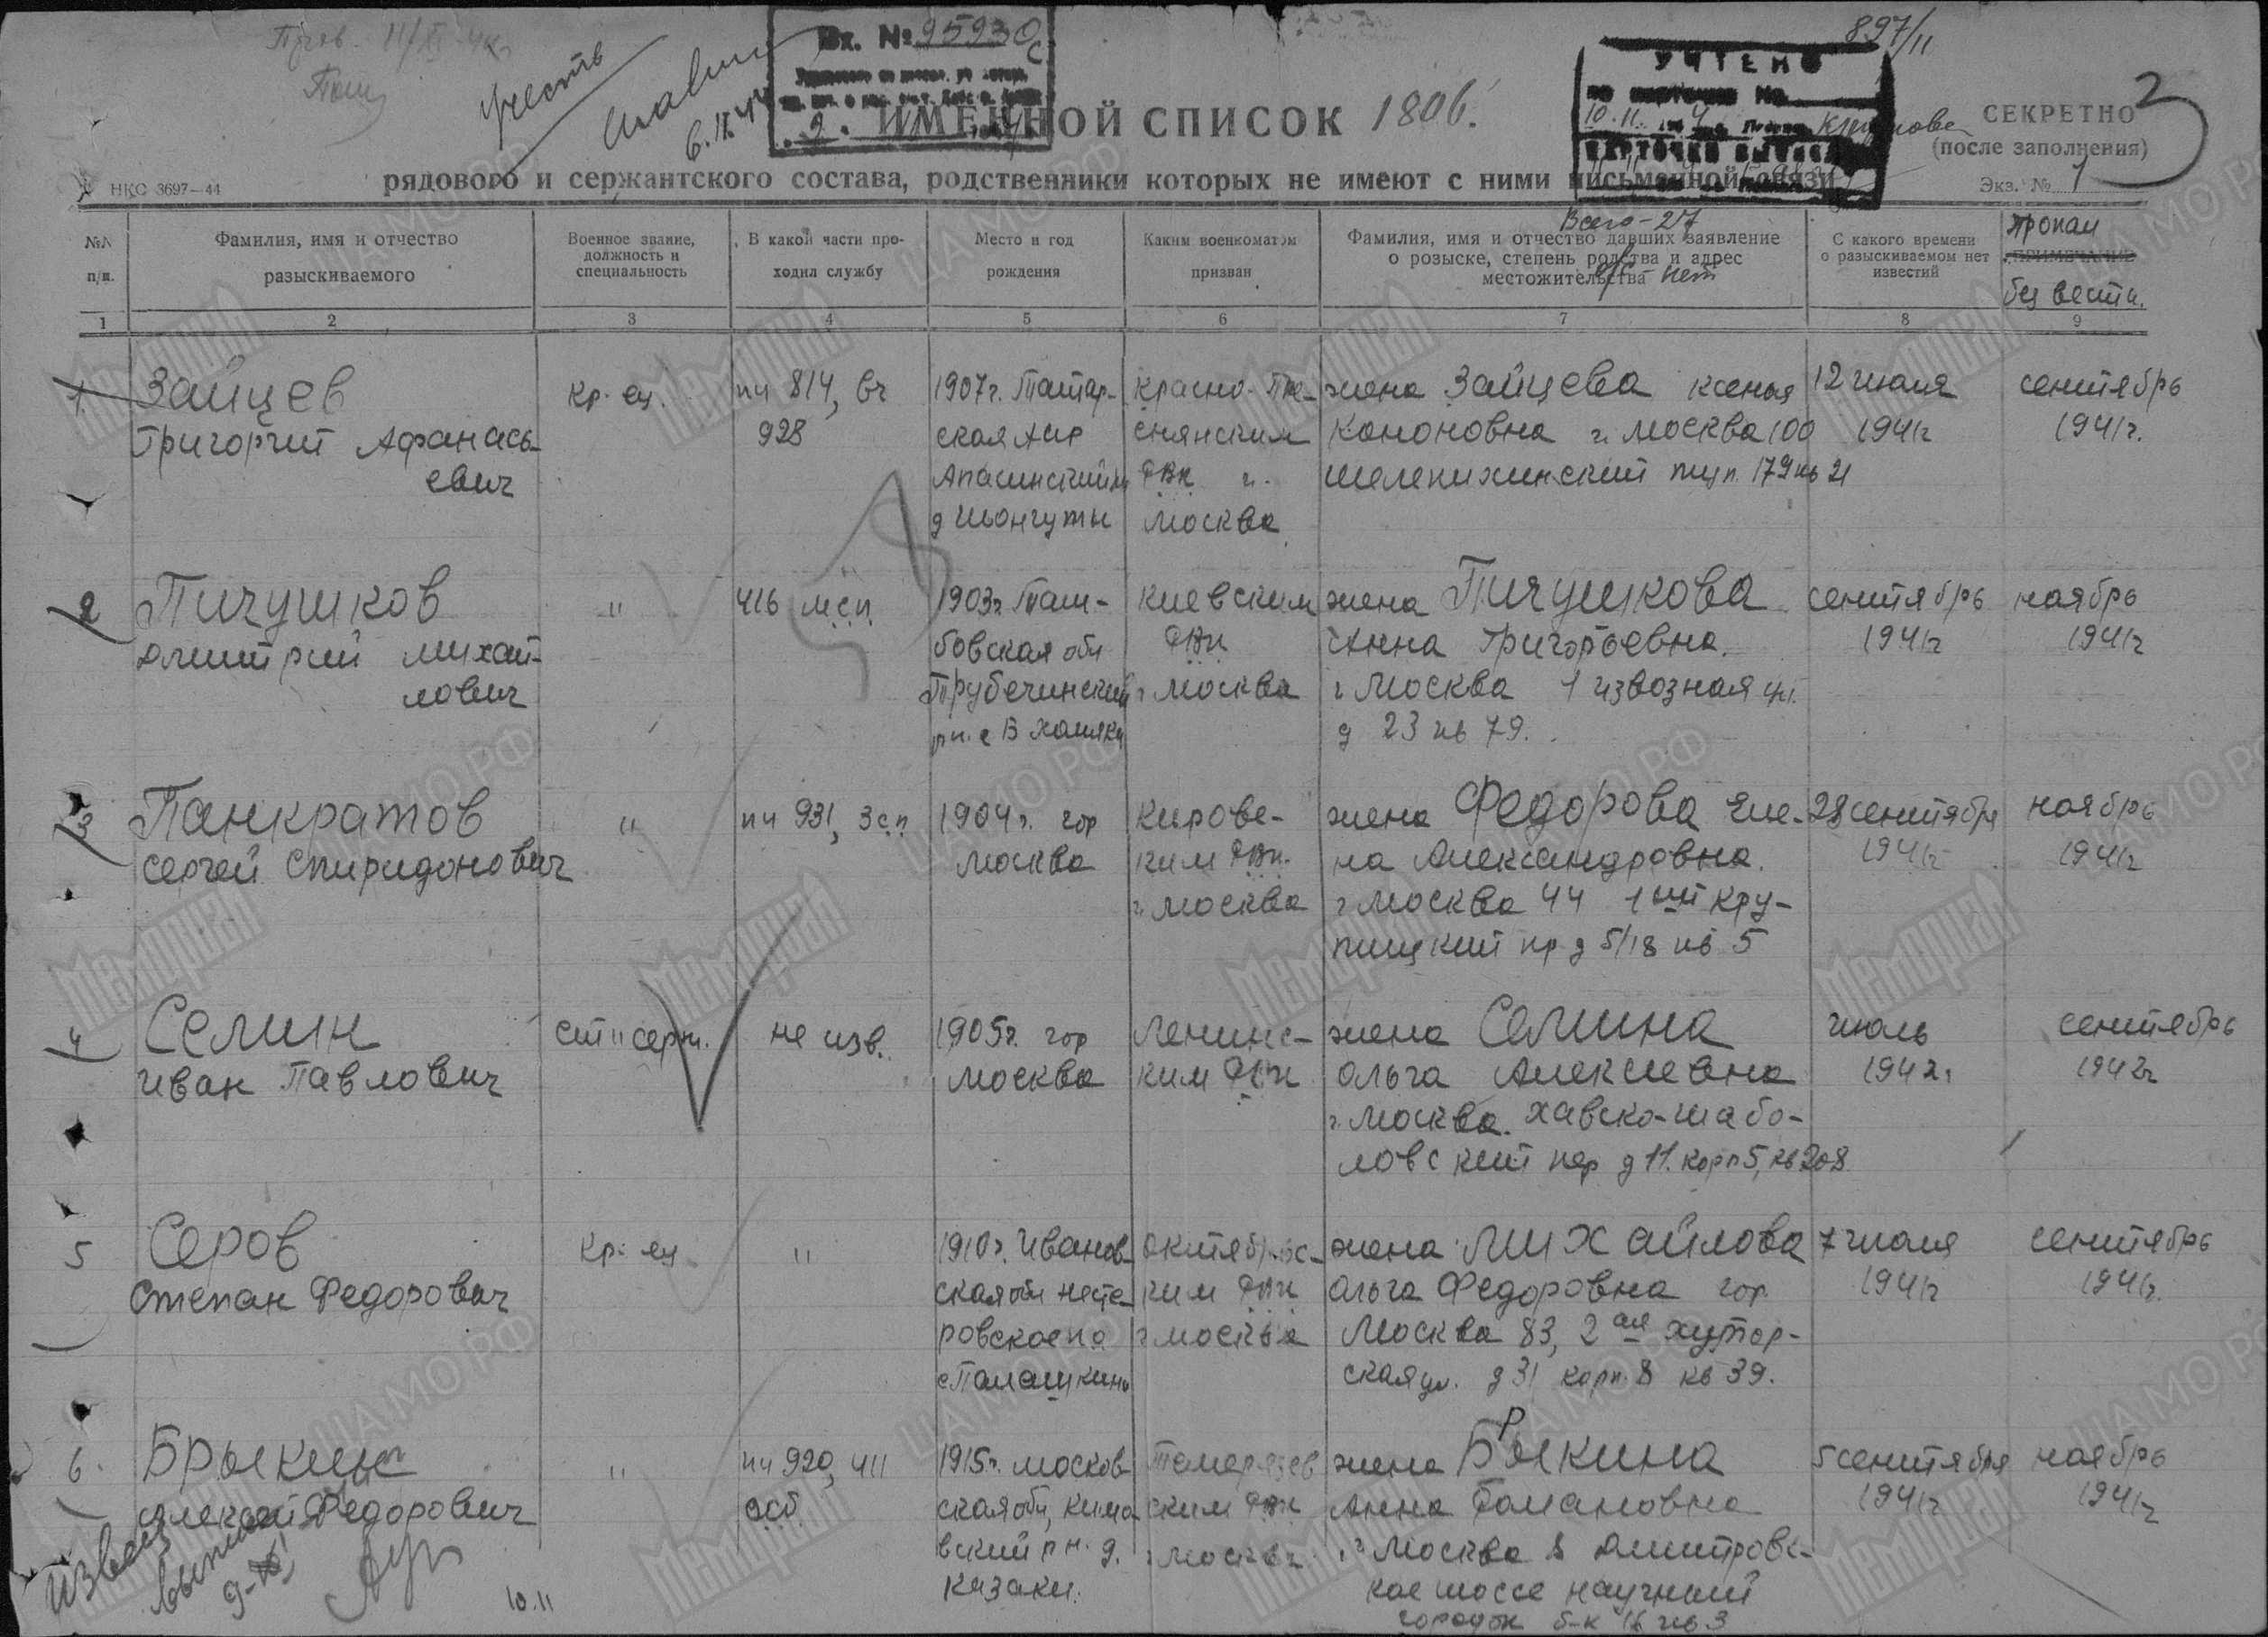 897/11
Вх. № 95930с
учесть
УЧТЕНО
ИМЕННОЙ СПИСОК 1806.
СЕКРЕТНО
(после заполнения)
Экз. № 1
3
НКО 3697—44
рядового и сержантского состава, родственники которых не имеют с ними письменной связи
Всего - 27
№№ п/п.
Фамилия, имя и отчество разыскиваемого
Военное звание, должность и специальность
В какой части проходил службу
Место и год рождения
Каким военкоматом призван
Фамилия, имя и отчество давших заявление о розыске, степень родства и адрес местожительства
нет
С какого времени о разыскиваемом нет известий
Пропал
ПРИМЕЧАНИЕ
без вести.
1 2 3 4 5 6 7 8 9
1. Зайцев кр-ец. пч 814, вч 1907г. Татар- Красно-Пре- жена Зайцева Ксенья 12 июля сентябрь
Григорий Афанась- 928 ская АССР снянским Кононовна г. Москва 100 1941г 1941г.
евич РВК г. Шелепихинский туп. 179 кв 21
Москва
2 Пичушков " 416 мсп 1903г. Там- Киевским жена Пичушкова сентябрь ноябрь
Дмитрий Михай- бовская обл РВК Анна Григорьевна. 1941г 1941г
лович Трубечинский г Москва г Москва 1 Извозная ул.
рн. с В Хомяки д 23 кв 79.
3 Панкратов " пч 931, 3сп 1904г. гор Кировс- жена Федорова Еле- 28 сентября ноябрь
Сергей Спиридонович Москва ким РВК. на Александровна. 1941г 1941г
г Москва г Москва 44 1ый Кру-
тицкий пр д 5/18 кв 5
4 Селин ст. серж. не изв. 1905г. гор Ленинс- жена Селина июль сентябрь
Иван Павлович Москва ким РВК Ольга Алексеевна 1942г 1942г
г. Москва. Хавско-Шабо-
ловский пер д 11. корп 5, кв 208
5 Серов кр-ец " 1910г. Иванов- Октябрьс- жена Михайлова 7 июля сентябрь
Степан Федорович ская обл ким РВК Ольга Федоровна гор 1941г 1941г.
г Москва Москва 83, 2ая Хутор-
ская ул. д 31 корп. 8 кв 39.
6. Брыкин " пч 920, 411 1915г. Москов- Тимирязев жена Брыкина 5 сентября ноябрь
Алексей Федорович осб ская обл, Кимо- ским РВК Анна Романовна 1941г 1941г
вский рн. д. г Москва г Москва 8 Дмитровс-
Казаки. кое шоссе научный
городок б-к 16 кв 3
извещ
10.11